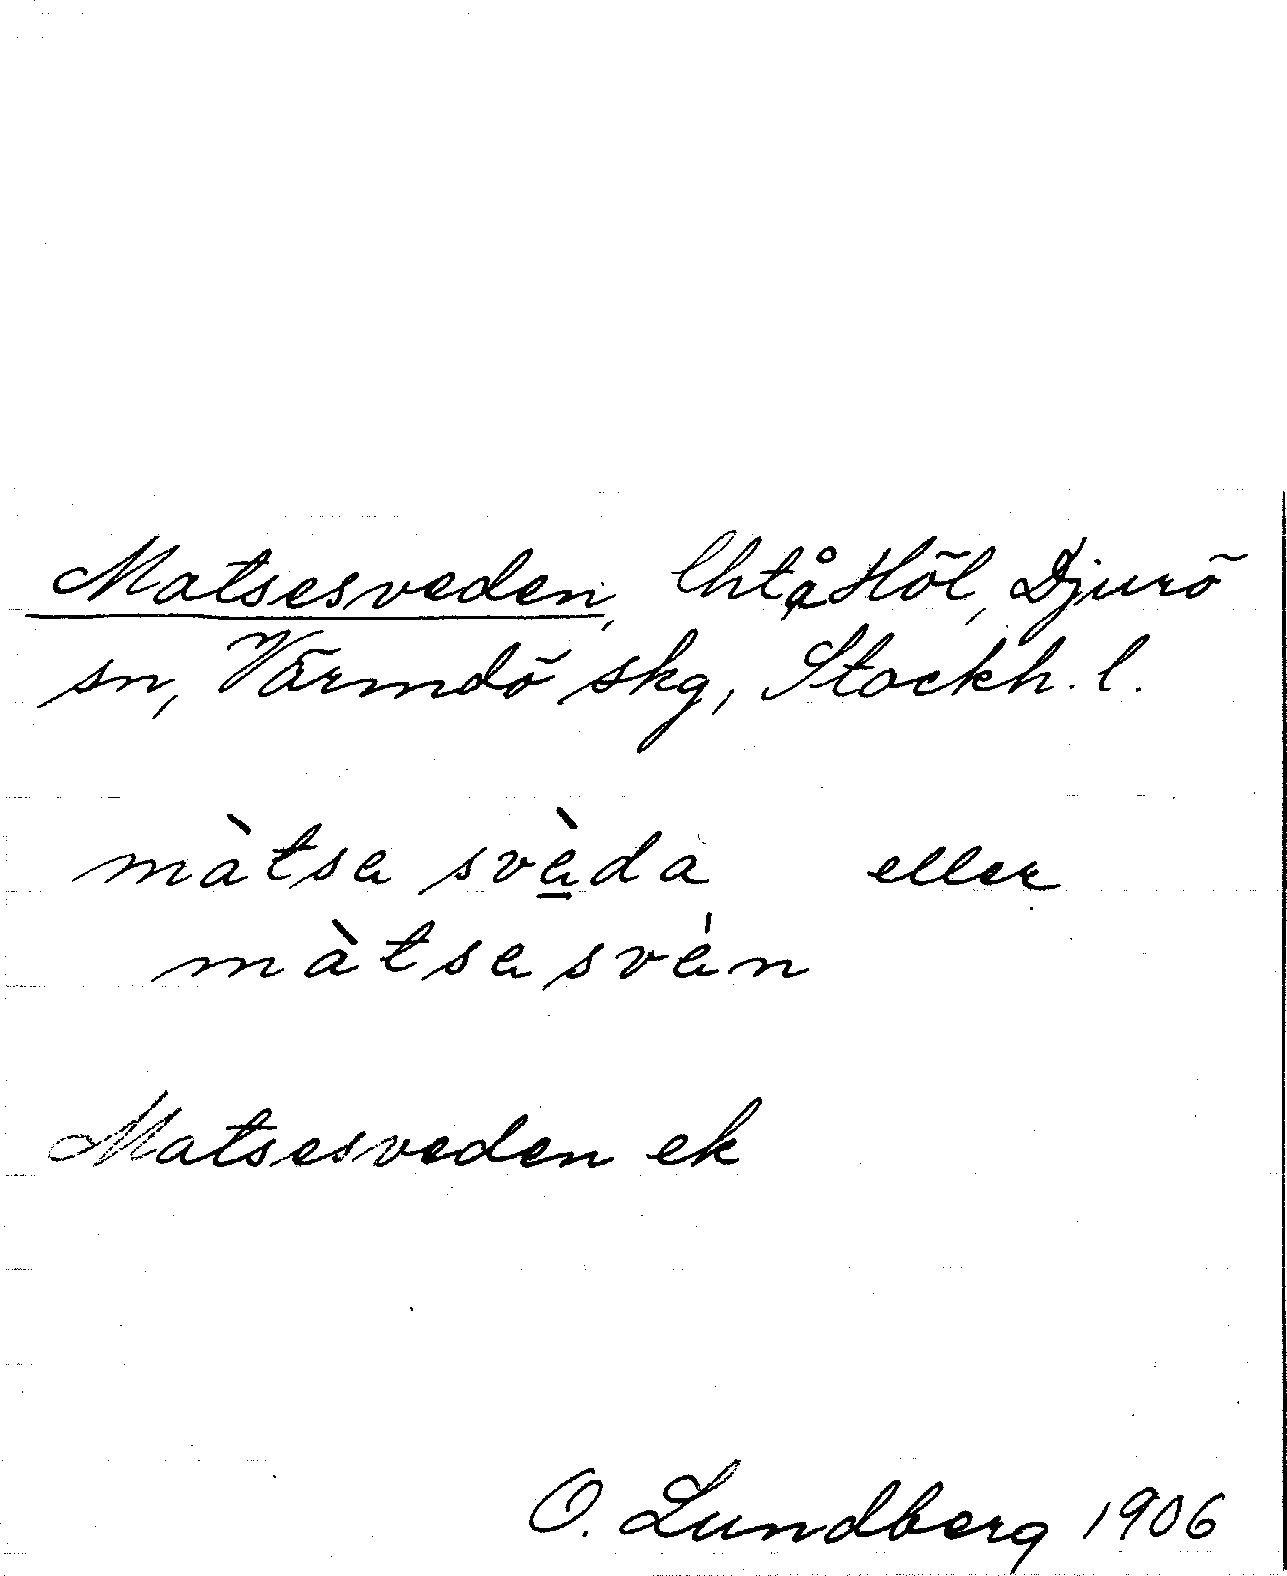 Matsesveden, lht å Höl, Djurö
sn, Värmdö skg, Stockh. l.
màtsa svèda eller
màtsasvén
Matsesveden ek
O. Lundberg 1906